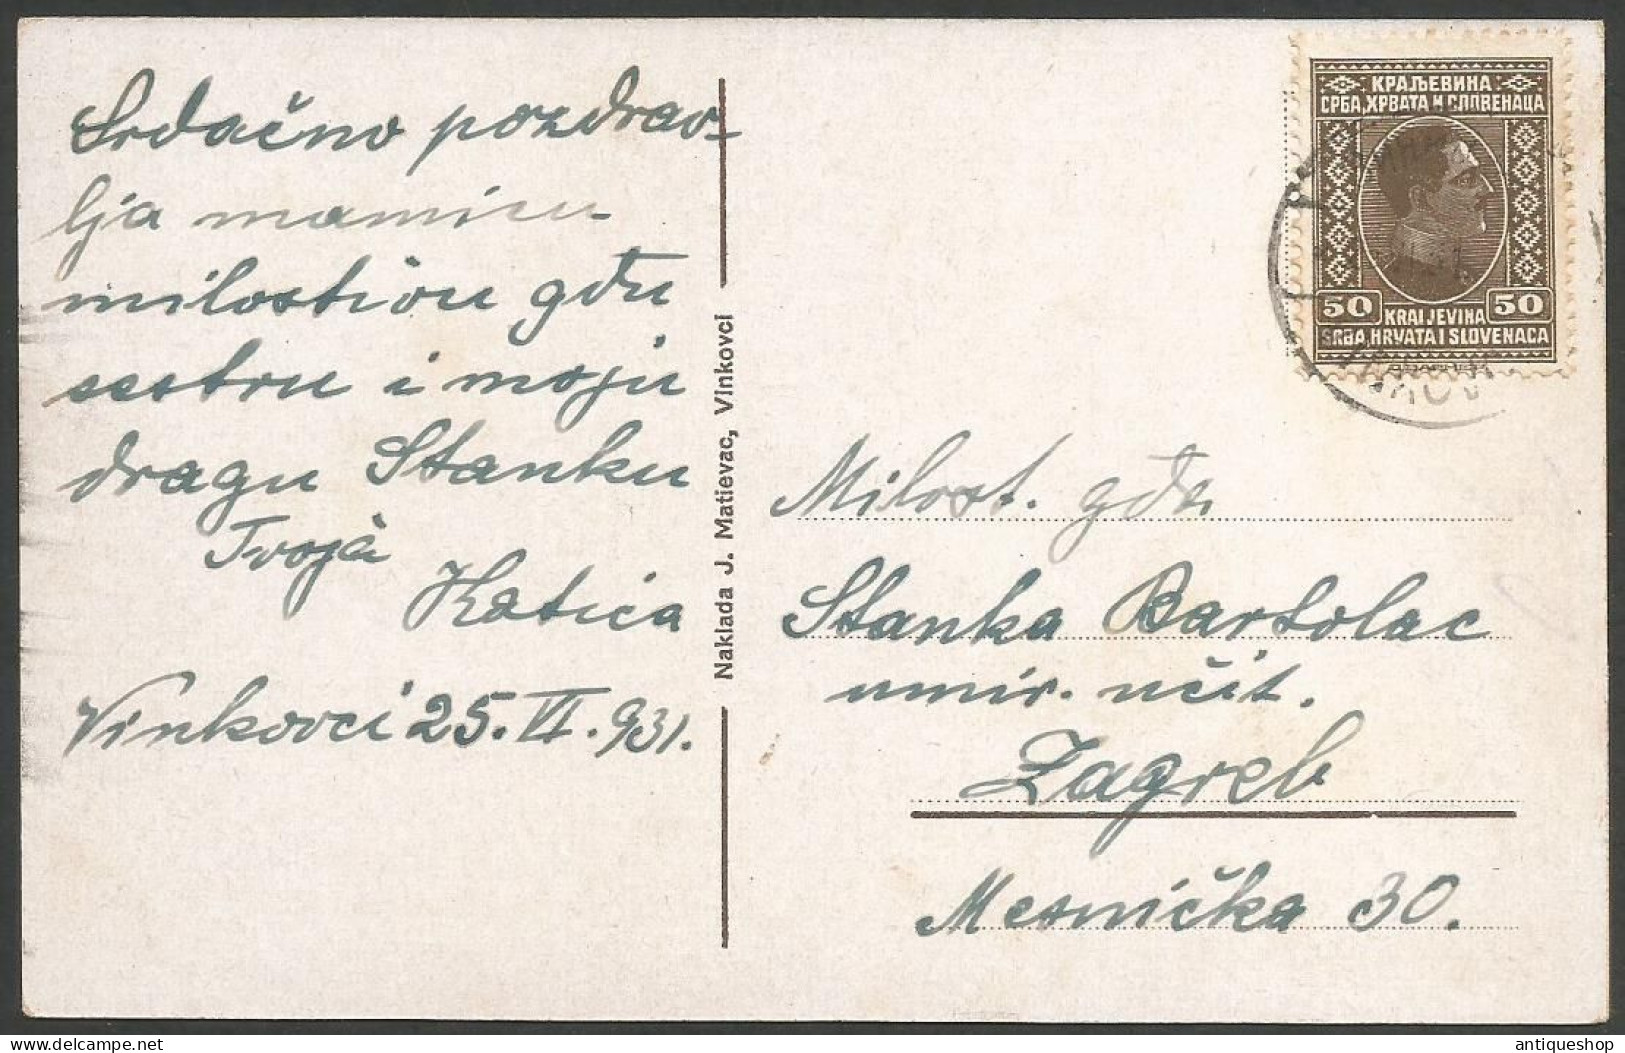 Srdačno pozdrav-
lja mamicu
milostivu gđu
sestru i moju
dragu Stanku
Tvoja
Katica
Vinkovci 25. VI. 931.
Naklada J. Matievac, Vinkovci
КРАЉЕВИНА
СРБА, ХРВАТА И СЛОВЕНАЦА
50 50
KRALJEVINA
SRBA, HRVATA I SLOVENACA
Milost. gđa
Stanka Bartolac
umir. učit.
Zagreb
Mesnička 30.
antiqueshop